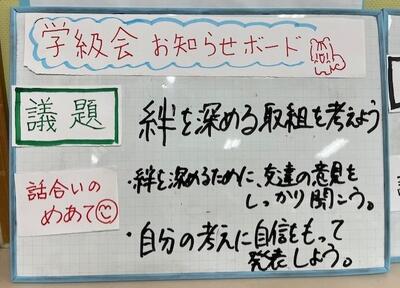 学級会 お知らせボード
議題
絆を深める取組を考えよう
話合いの
めあて
・絆を深めるために、友達の意見を
しっかり聞こう。
・自分の考えに自信をもって
発表しよう。